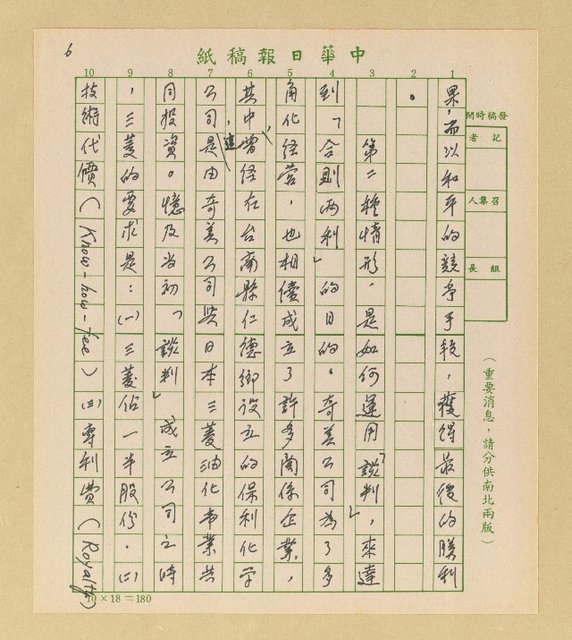 6
中華日報稿紙
發稿時間
記者
召集人
組長
(重要消息,請分供南北兩版)
1 2 3 4 5 6 7 8 9 10
果,而以和平的競爭手段,獲得最後的勝利
。
第二種情形,是如何運用「談判」,來達
到「合則兩利」的目的。奇美公司為了多
角化經營,也相繼成立了許多關係企業,
其中曾經在台南縣仁德鄉設立的保利化學
公司,這是由奇美公司與日本三菱油化事業共
同投資。憶及當初「談判」成立公司之時
,三菱的要求是:(一)三菱佔一半股份.(二)
技術代價(Know-how-fee)(三)專利費(Royalty)
10×18=180